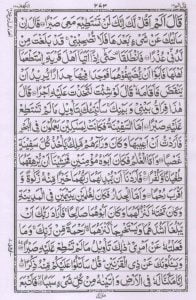 قَالَ اَلَمْ اَقُلْ لَّكَ اِنَّكَ لَنْ تَسْتَطِيْعَ مَعِيَ صَبْرًا قَالَ اِنْ
سَاَلْتُكَ عَنْ شَيْءٍۭ بَعْدَهَا فَلَا تُصٰحِبْنِيْ قَدْ بَلَغْتَ مِنْ
لَّدُنِّيْ عُذْرًا فَانْطَلَقَا حَتّٰۤى اِذَاۤ اَتَيَاۤ اَهْلَ قَرْيَةِ ِۨاسْتَطْعَمَاۤ
اَهْلَهَا فَاَبَوْا اَنْ يُّضَيِّفُوْهُمَا فَوَجَدَا فِيْهَا جِدَارًا يُّرِيْدُ اَنْ
يَّنْقَضَّ فَاَقَامَهٗ قَالَ لَوْ شِئْتَ لَتَّخَذْتَ عَلَيْهِ اَجْرًا قَالَ
هٰذَا فِرَاقُ بَيْنِيْ وَبَيْنِكَ سَاُنَبِّئُكَ بِتَاْوِيْلِ مَا لَمْ تَسْتَطِعْ
عَّلَيْهِ صَبْرًا اَمَّا السَّفِيْنَةُ فَكَانَتْ لِمَسٰكِيْنَ يَعْمَلُوْنَ فِي
الْبَحْرِ فَاَرَدْتُّ اَنْ اَعِيْبَهَا وَكَانَ وَرَآءَهُمْ مَّلِكٌ يَّاْخُذُ كُلَّ سَفِيْنَةٍ
غَصْبًا وَاَمَّا الْغُلٰمُ فَكَانَ اَبَوٰهُ مُؤْمِنَيْنِ فَخَشِيْنَاۤ اَنْ يُّرْهِقَهُمَا
طُغْيَانًا وَّكُفْرًا فَاَرَدْنَاۤ اَنْ يُّبْدِلَهُمَا رَبُّهُمَا خَيْرًا مِّنْهُ زَكٰوةً وَّ
اَقْرَبَ رُحْمًا وَاَمَّا الْجِدَارُ فَكَانَ لِغُلٰمَيْنِ يَتِيْمَيْنِ فِي الْمَدِيْنَةِ
وَكَانَ تَحْتَهٗ كَنْزٌ لَّهُمَا وَكَانَ اَبُوْهُمَا صَالِحًا فَاَرَادَ رَبُّكَ اَنْ
يَّبْلُغَاۤ اَشُدَّهُمَا وَيَسْتَخْرِجَا كَنْزَهُمَا رَحْمَةً مِّنْ رَّبِّكَ وَمَا
فَعَلْتُهٗ عَنْ اَمْرِيْ ذٰلِكَ تَاْوِيْلُ مَا لَمْ تَسْطِعْ عَّلَيْهِ صَبْرًا
وَيَسْـَٔلُوْنَكَ عَنْ ذِي الْقَرْنَيْنِ قُلْ سَاَتْلُوْا عَلَيْكُمْ مِّنْهُ ذِكْرًا
اِنَّا مَكَّنَّا لَهٗ فِي الْاَرْضِ وَاٰتَيْنٰهُ مِنْ كُلِّ شَيْءٍ سَبَبًا فَاَتْبَعَ